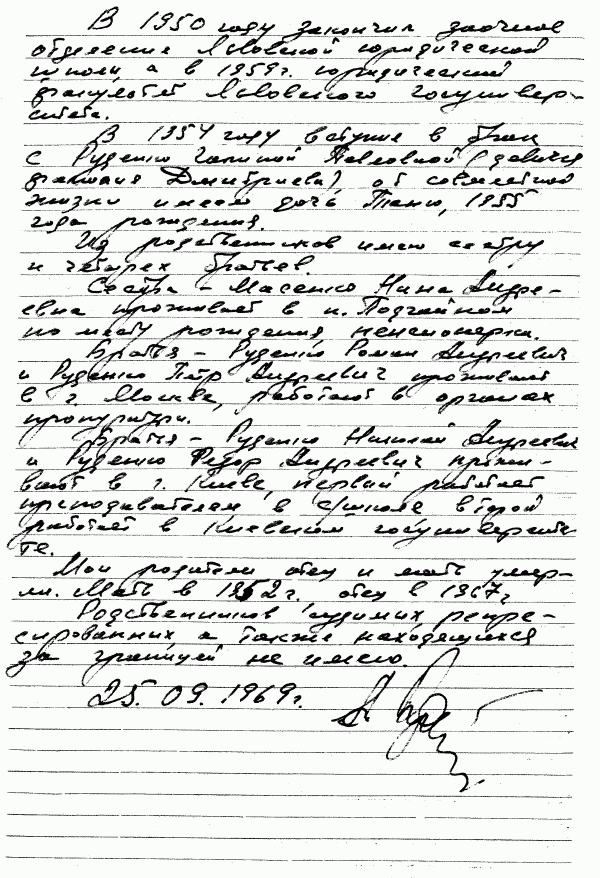 В 1950 году закончил заочное
отделение Львовской юридической
школы, а в 1959г. юридический
факультет Львовского госунивер-
ситета.
В 1954 году вступил в брак
с Руденко Галиной Павловной (девичья
фамилия Дмитриева), от совместной
жизни имеем дочь Таню, 1955
года рождения.
Из родственников имею сестру
и четырех братьев.
Сестра - Масенко Нина Андре-
евна проживает в н. Подгайном
по месту рождения, пенсионерка.
Братья - Руденко Роман Андреевич
и Руденко Петр Андреевич проживают
в г. Москва, работают в органах
прокуратуры.
Братья - Руденко Николай Андреевич
и Руденко Федор Андреевич прожи-
вают в г. Киеве, первый работает
преподавателем в с/школе второй
работает в Киевском госуниверсите
те.
Мои родители отец и мать умер-
ли. Мать в 1952г. отец в 1967г
Родственников судимых репре-
сированных а также находящихся
за границей не имею.
25. 09. 1969г.